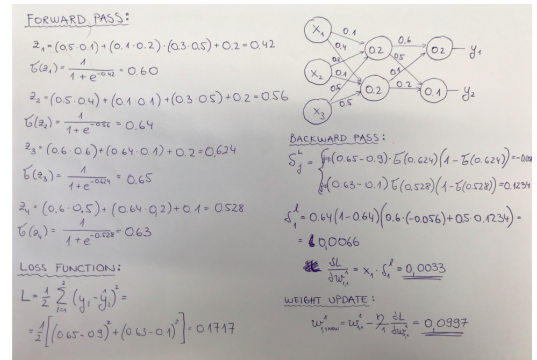 FORWARD PASS:
z₁ = (0.5·0.1)+(0.1·0.2)·(0.3·0.5)+0.2 = 0.42
σ(z₁) = 1/(1+e^-0.42) = 0.60
z₂ = (0.5·0.4)+(0.1·0.1)+(0.3·0.5)+0.2 = 0.56
σ(z₂) = 1/(1+e^-0.56) = 0.64
z₃ = (0.6·0.6)+(0.64·0.1)+0.2 = 0.624
σ(z₃) = 1/(1+e^-0.614) = 0.65
z₄ = (0.6·0.5)+(0.64·0.2)+0.1 = 0.528
σ(z₄) = 1/(1+e^-0.528) = 0.63
LOSS FUNCTION:
L = 1/2 Σ (yᵢ-ŷᵢ)² =
= 1/2 [(0.65-0.9)²+(0.63-0.1)²] = 0.1717
x₁ 0.1 0.2 0.6 0.2 y₁
0.4 0.5
x₂ 0.1 0.1
0.2 0.2 0.1 y₂
x₃ 0.5
BACKWARD PASS:
δⱼᴸ = (0.65-0.9)·σ(0.624)(1-σ(0.624)) =
(0.63-0.1)σ(0.528)(1-σ(0.528)) = 0.1234
δ₁ˡ = 0.64(1-0.64)(0.6·(-0.056)+0.5·0.1234) =
= 0.0066
∂L/∂w₁,₁¹ = x₁·δ₁ˡ = 0.0033
WEIGHT UPDATE:
= w₁,₁¹ - η/1 ∂L/∂w₁,₁¹ = 0.0997